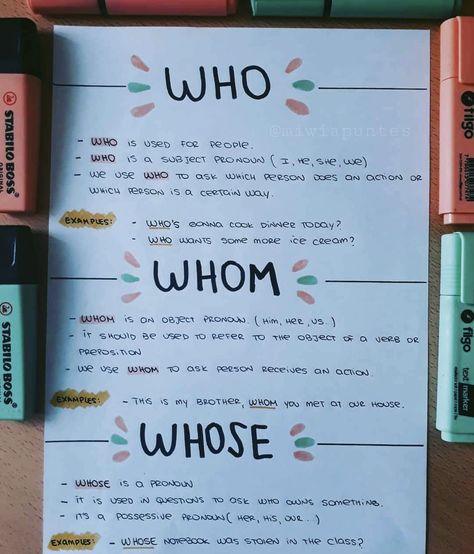 WHO
@miwiapuntes
- WHO IS USED FOR PEOPLE.
- WHO IS A SUBJECT PRONOUN ( I, HE, SHE, WE)
- WE USE WHO TO ASK WHICH PERSON DOES AN ACTION OR
WHICH PERSON IS A CERTAIN WAY.
EXAMPLES: - WHO'S GONNA COOK DINNER TODAY?
- WHO WANTS SOME MORE ICE CREAM?
WHOM
- WHOM IS AN OBJECT PRONOUN. ( HIM, HER, US..)
- IT SHOULD BE USED TO REFER TO THE OBJECT OF A VERB OR
PREPOSITION
- WE USE WHOM TO ASK PERSON RECEIVES AN ACTION.
EXAMPLES: - THIS IS MY BROTHER, WHOM YOU MET AT OUR HOUSE.
WHOSE
- WHOSE IS A PRONOUN
- IT IS USED IN QUESTIONS TO ASK WHO OWNS SOMETHING.
- ITS A POSSESSIVE PRONOUN ( HER, HIS, OUR ...)
EXAMPLES: - WHOSE NOTEBOOK WAS STOLEN IN THE CLASS?
STABILO BOSS
ORIGINAL
STABILO BOSS
filgo
filgo
text marker